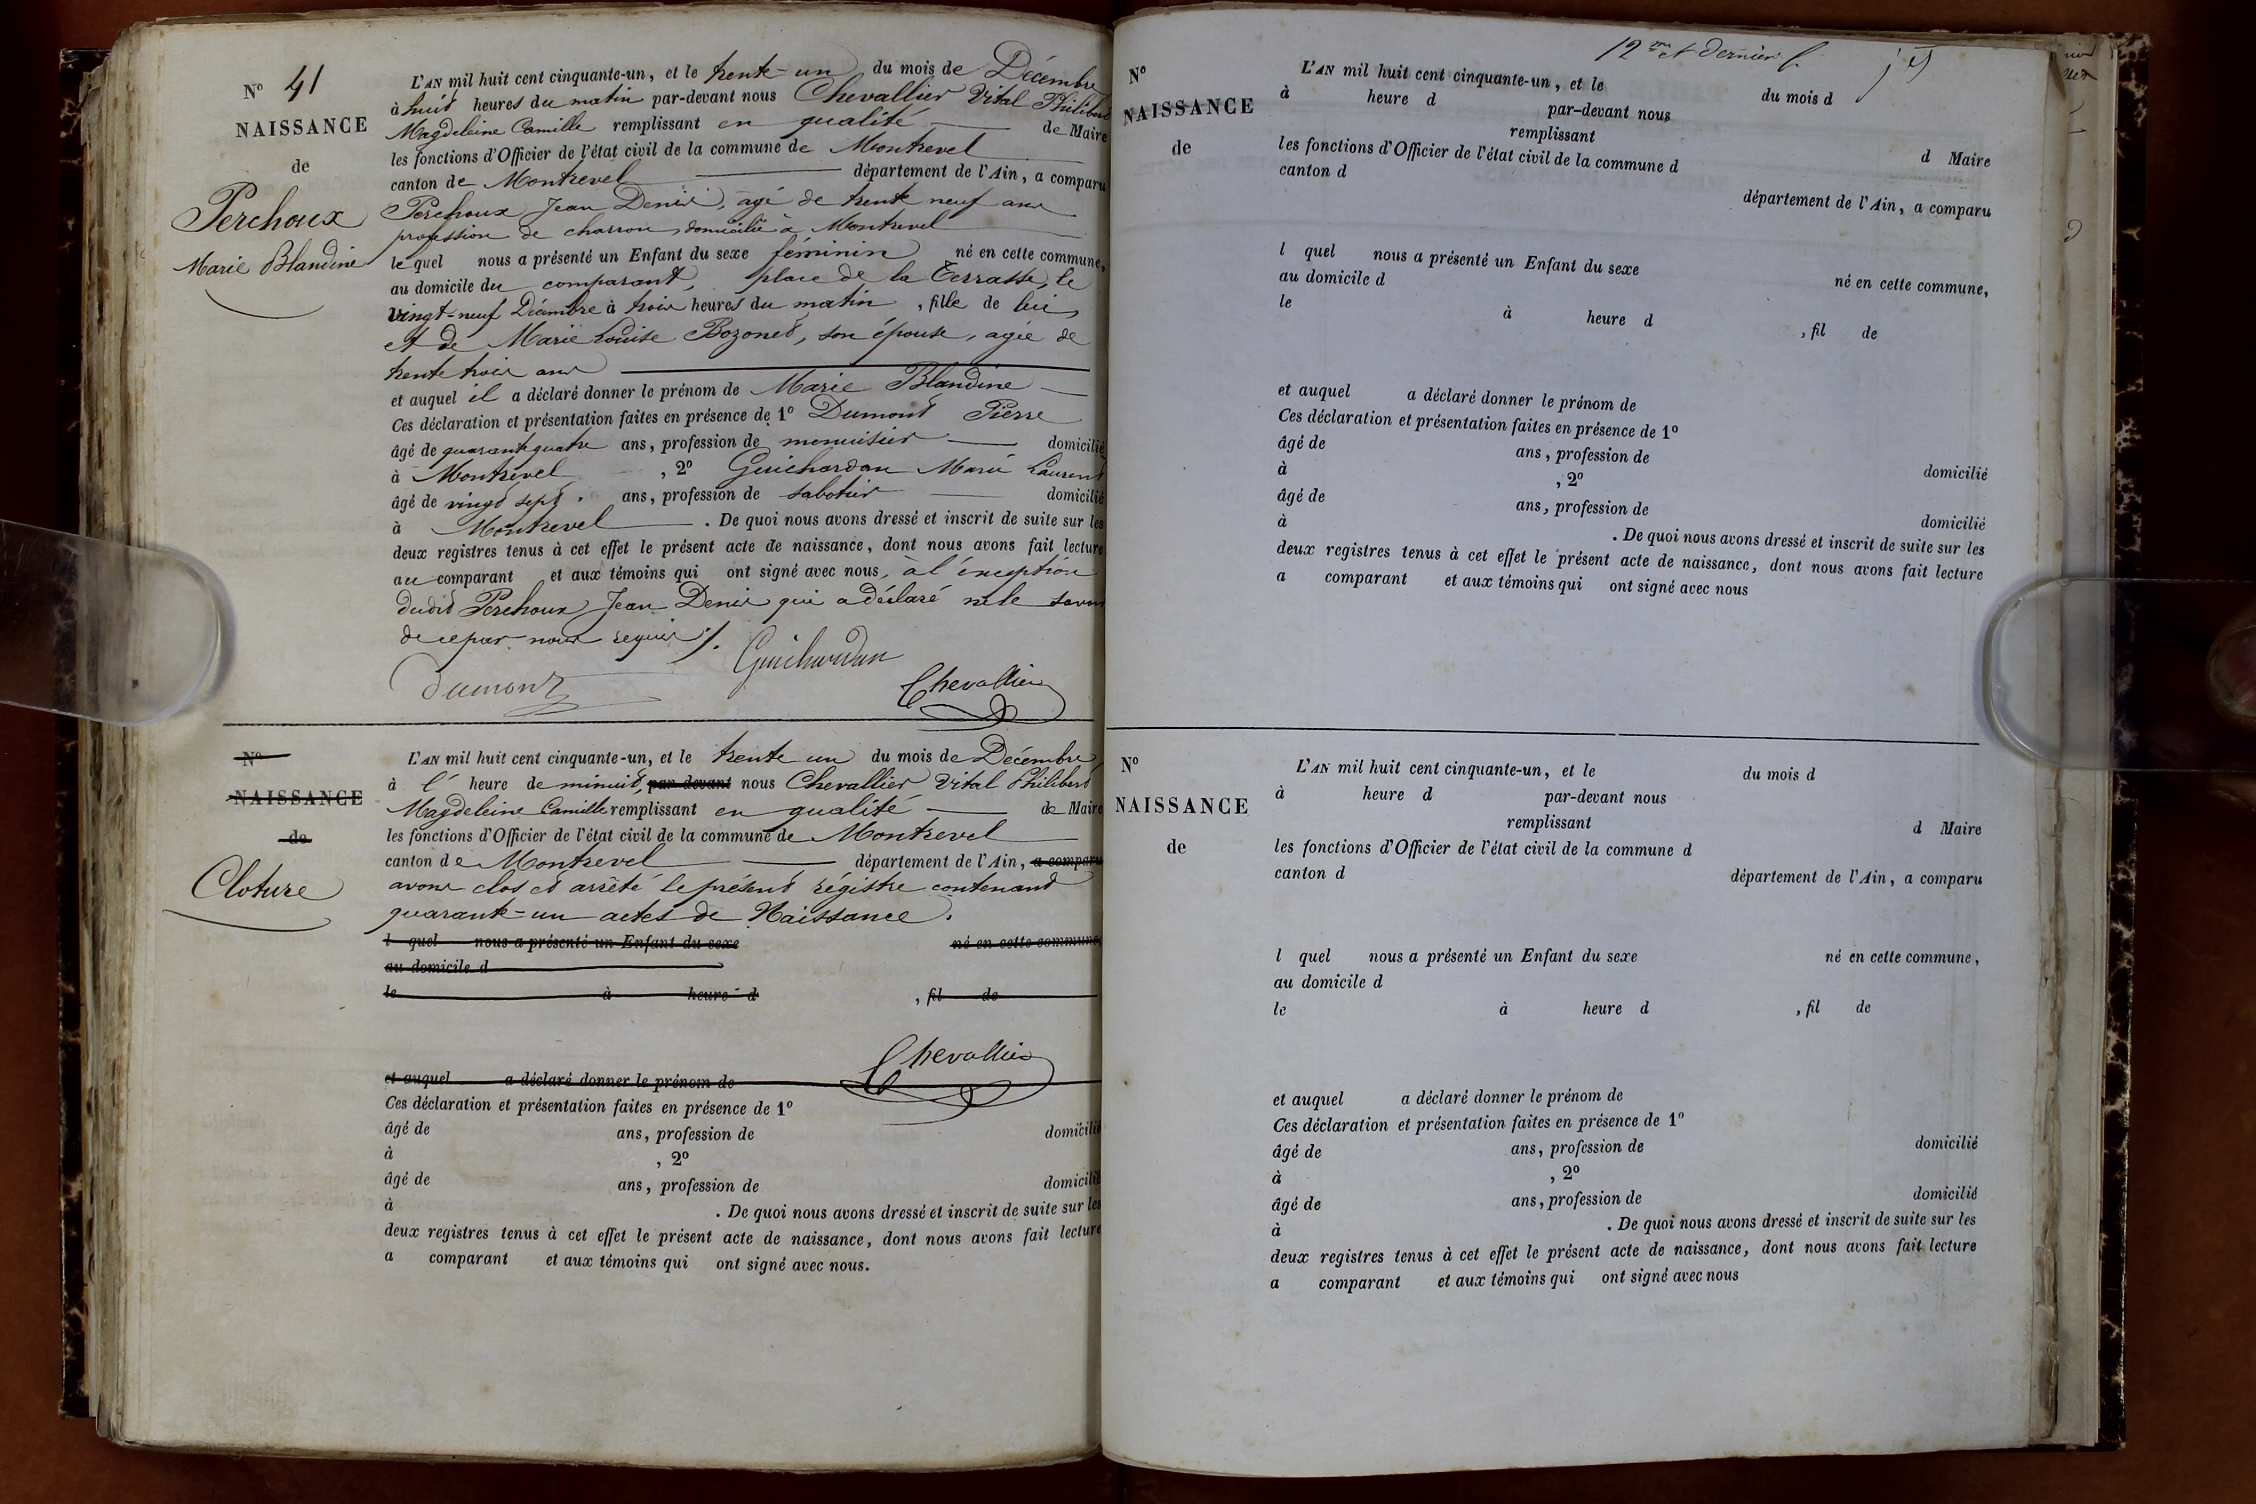 N° 41
NAISSANCE
de
Perchoux
Marie Blandine
L'AN mil huit cent cinquante-un, et le trente-un du mois de Décembre
à huit heures du matin par-devant nous Chevallier Vital Philibert
Magdeleine Camille remplissant en qualité de Maire
les fonctions d'Officier de l'état civil de la commune de Montrevel
canton de Montrevel département de l'Ain, a comparu
Perchoux Jean Denis, agé de trente neuf ans
profession de charron, domicilié à Montrevel
lequel nous a présenté un Enfant du sexe féminin né en cette commune,
au domicile du comparant, place de la Terrasse, le
vingt-neuf Décembre à trois heures du matin, fille de lui,
et de Marie Louise Bozonet, son épouse, agée de
trente trois ans
et auquel il a déclaré donner le prénom de Marie Blandine
Ces déclaration et présentation faites en présence de 1° Dumont Pierre
âgé de quarante quatre ans, profession de menuisier domicilié
à Montrevel, 2° Guichardan Marie Laurent
âgé de vingt sept ans, profession de sabotier domicilié
à Montrevel. De quoi nous avons dressé et inscrit de suite sur les
deux registres tenus à cet effet le présent acte de naissance, dont nous avons fait lecture
au comparant et aux témoins qui ont signé avec nous, à l'éxception
dudit Perchoux Jean Denis qui a déclaré ne le savoir
de ce par nous requis ./.
Dumont Guichardan Chevallier
N°
NAISSANCE
de
Cloture
L'AN mil huit cent cinquante-un, et le trente un du mois de Décembre
à l' heure de minuit, par devant nous Chevallier Vital Philibert
Magdeleine Camille remplissant en qualité de Maire
les fonctions d'Officier de l'état civil de la commune de Montrevel
canton de Montrevel département de l'Ain, a comparu
avons clos et arrêté le présent régistre contenant
quarante-un actes de Naissance.
l quel nous a présenté un Enfant du sexe né en cette commune,
au domicile d
le à heure d , fil de
Chevallier
et auquel a déclaré donner le prénom de
Ces déclaration et présentation faites en présence de 1°
âgé de ans, profession de domicilié
à , 2°
âgé de ans, profession de domicilié
à . De quoi nous avons dressé et inscrit de suite sur les
deux registres tenus à cet effet le présent acte de naissance, dont nous avons fait lecture
a comparant et aux témoins qui ont signé avec nous.
12me et dernier f.
N°
NAISSANCE
de
L'AN mil huit cent cinquante-un, et le du mois d
à heure d par-devant nous
remplissant d Maire
les fonctions d'Officier de l'état civil de la commune d
canton d département de l'Ain, a comparu
l quel nous a présenté un Enfant du sexe né en cette commune,
au domicile d
le à heure d , fil de
et auquel a déclaré donner le prénom de
Ces déclaration et présentation faites en présence de 1°
âgé de ans, profession de domicilié
à , 2°
âgé de ans, profession de domicilié
à . De quoi nous avons dressé et inscrit de suite sur les
deux registres tenus à cet effet le présent acte de naissance, dont nous avons fait lecture
a comparant et aux témoins qui ont signé avec nous
N°
NAISSANCE
de
L'AN mil huit cent cinquante-un, et le du mois d
à heure d par-devant nous
remplissant d Maire
les fonctions d'Officier de l'état civil de la commune d
canton d département de l'Ain, a comparu
l quel nous a présenté un Enfant du sexe né en cette commune,
au domicile d
le à heure d , fil de
et auquel a déclaré donner le prénom de
Ces déclaration et présentation faites en présence de 1°
âgé de ans, profession de domicilié
à , 2°
âgé de ans, profession de domicilié
à . De quoi nous avons dressé et inscrit de suite sur les
deux registres tenus à cet effet le présent acte de naissance, dont nous avons fait lecture
a comparant et aux témoins qui ont signé avec nous